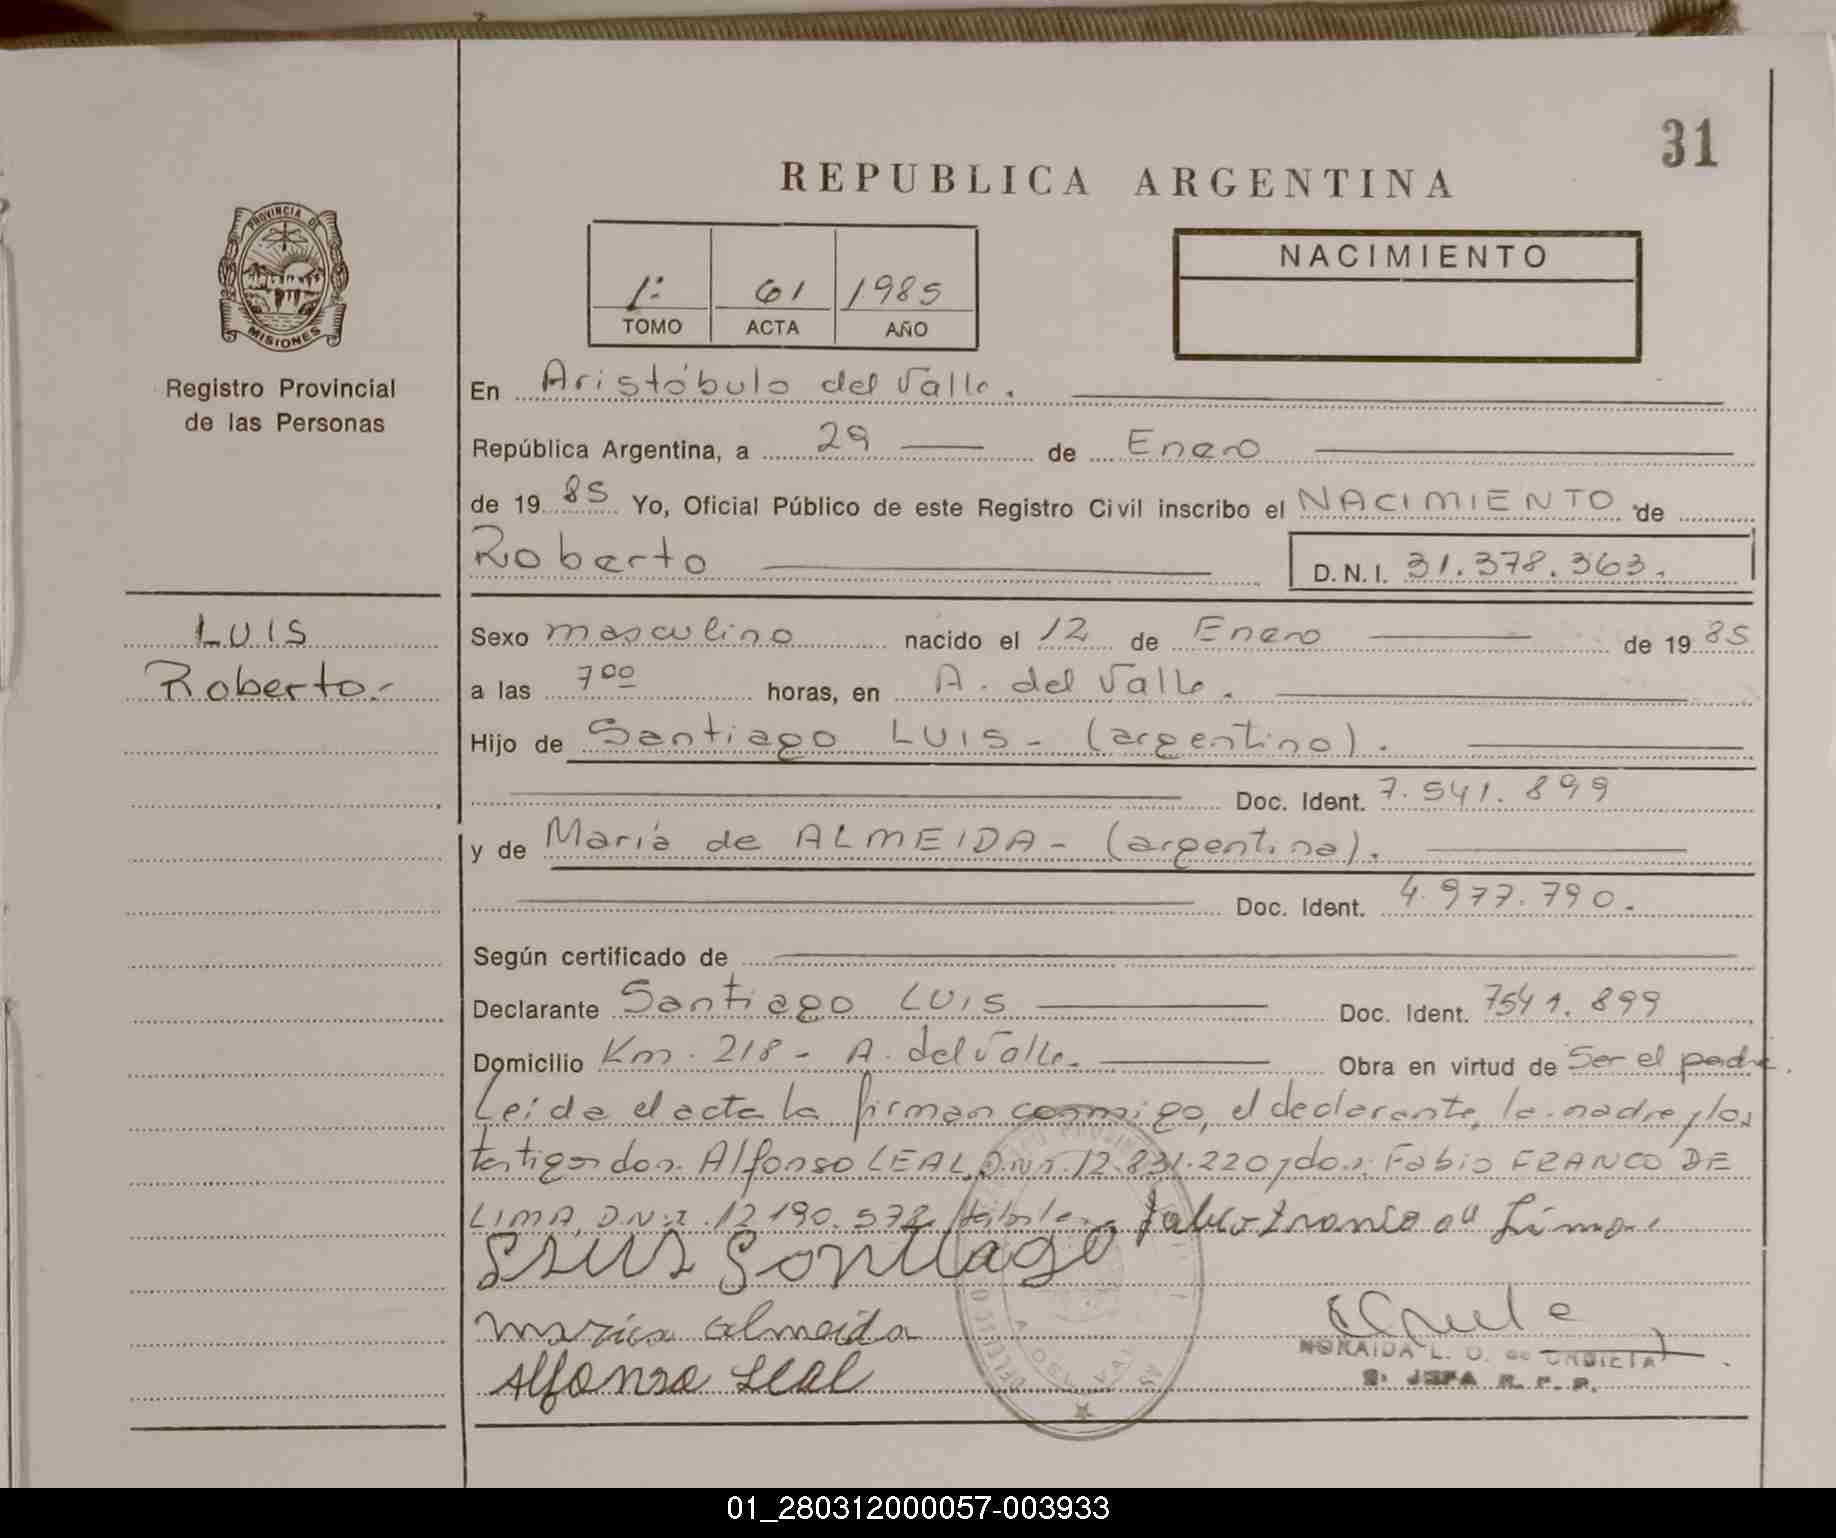 31
REPUBLICA ARGENTINA
PROVINCIA DE
MISIONES
Registro Provincial
de las Personas
1º 61 1985
TOMO ACTA AÑO
NACIMIENTO
En Aristóbulo del Valle.
República Argentina, a 29 de Enero
de 19 85 Yo, Oficial Público de este Registro Civil inscribo el NACIMIENTO de
Roberto D.N.I. 31.378.363.
LUIS
Roberto.-
Sexo masculino nacido el 12 de Enero de 19 85
a las 7 00 horas, en A. del Valle.
Hijo de Santiago LUIS - (argentino).
Doc. Ident. 7.541.899
y de María de ALMEIDA - (argentina).
Doc. Ident. 4.977.790.
Según certificado de
Declarante Santiago LUIS Doc. Ident. 7541.899
Domicilio Km. 218 - A. del Valle. Obra en virtud de Ser el padre.
Leida el acta la firman conmigo, el declarante, la madre y los
testigos don. Alfonso LEAL, D.N.I. 12.831.220 y don: Fabio FRANCO DE
LIMA, D.N.I. 12.190.572 Fabio Franco de Lima
Luis Santiago
Maria Almeida
Alfonso Leal
NORAIDA L. O. de
S. JEFA R. P. P.
01_280312000057-003933